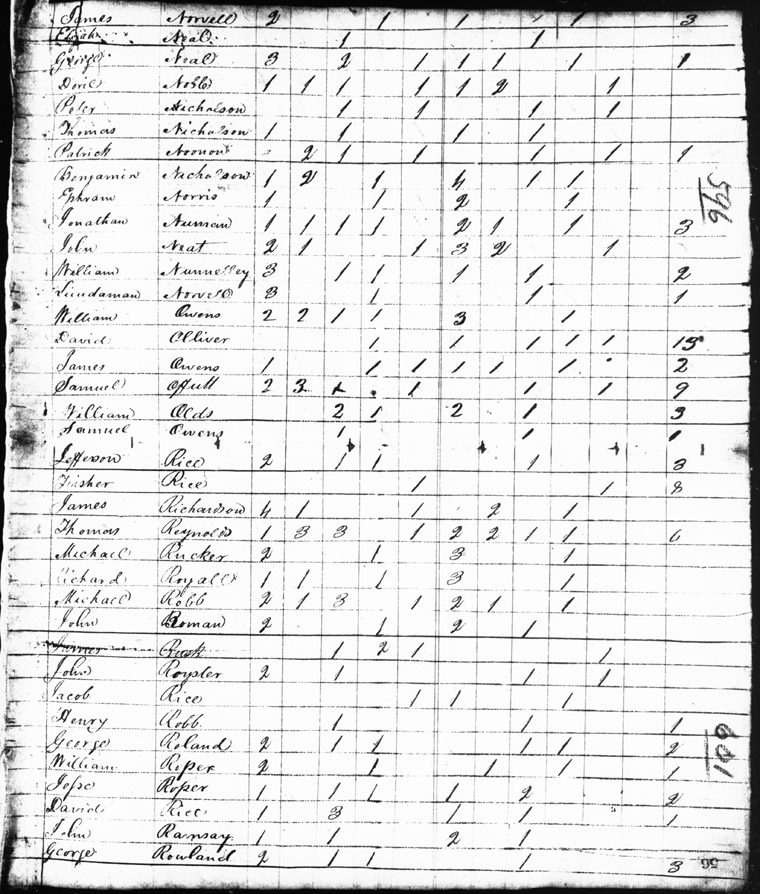 James Norvell 2 1 1 1 1 3
Elijah Neal 1 1
George Neal 3 2 1 1 1 1 1
Noble 1 1 1 1 1 2 1
Peter Nicholson 1 1 1 1
Thomas Nicholson 1 1 1 1
Patrick 2 1 1 1 1 1
Benjamin Nicholson 1 2 1 4 1 1
Ephram Norris 1 1 2 1
Jonathan Numan 1 1 1 1 2 1 1 3
John Neat 2 1 1 3 2 1
William Nunnelley 3 1 1 1 1 2
Norvell 3 1 1 1
William Owens 2 2 1 1 3 1
David Olliver 1 1 1 1 1 13
James Owens 1 1 1 1 1 1 2
Samuel Offutt 2 3 1 1 1 9
William Olds 2 1 2 1 3
Samuel Owens 1 1 1
Jefferson Rice 2 1 1 1 3
Fisher Rice 1 1 8
James Richardson 4 1 1 2 1
Thomas Reynolds 1 3 3 1 2 2 1 1 6
Michael Rucker 2 1 3 1
Richard Royall 1 1 1 3 1
Michael Robb 2 1 3 1 2 1 1
John Roman 2 1 2 1
Rusk 1 2 1 1
John Royster 2 1 1 1
Jacob Rice 1 1 1
Henry Robb 1 1 1
George Roland 2 1 1 1 1 2
William Roper 2 1 1 1 1
Jesse Roper 1 1 1 1 2 2
David Rice 1 3 1 1 1
John Ramsay 1 1 2 1
George Rowland 2 1 1 1 3
596
601
56